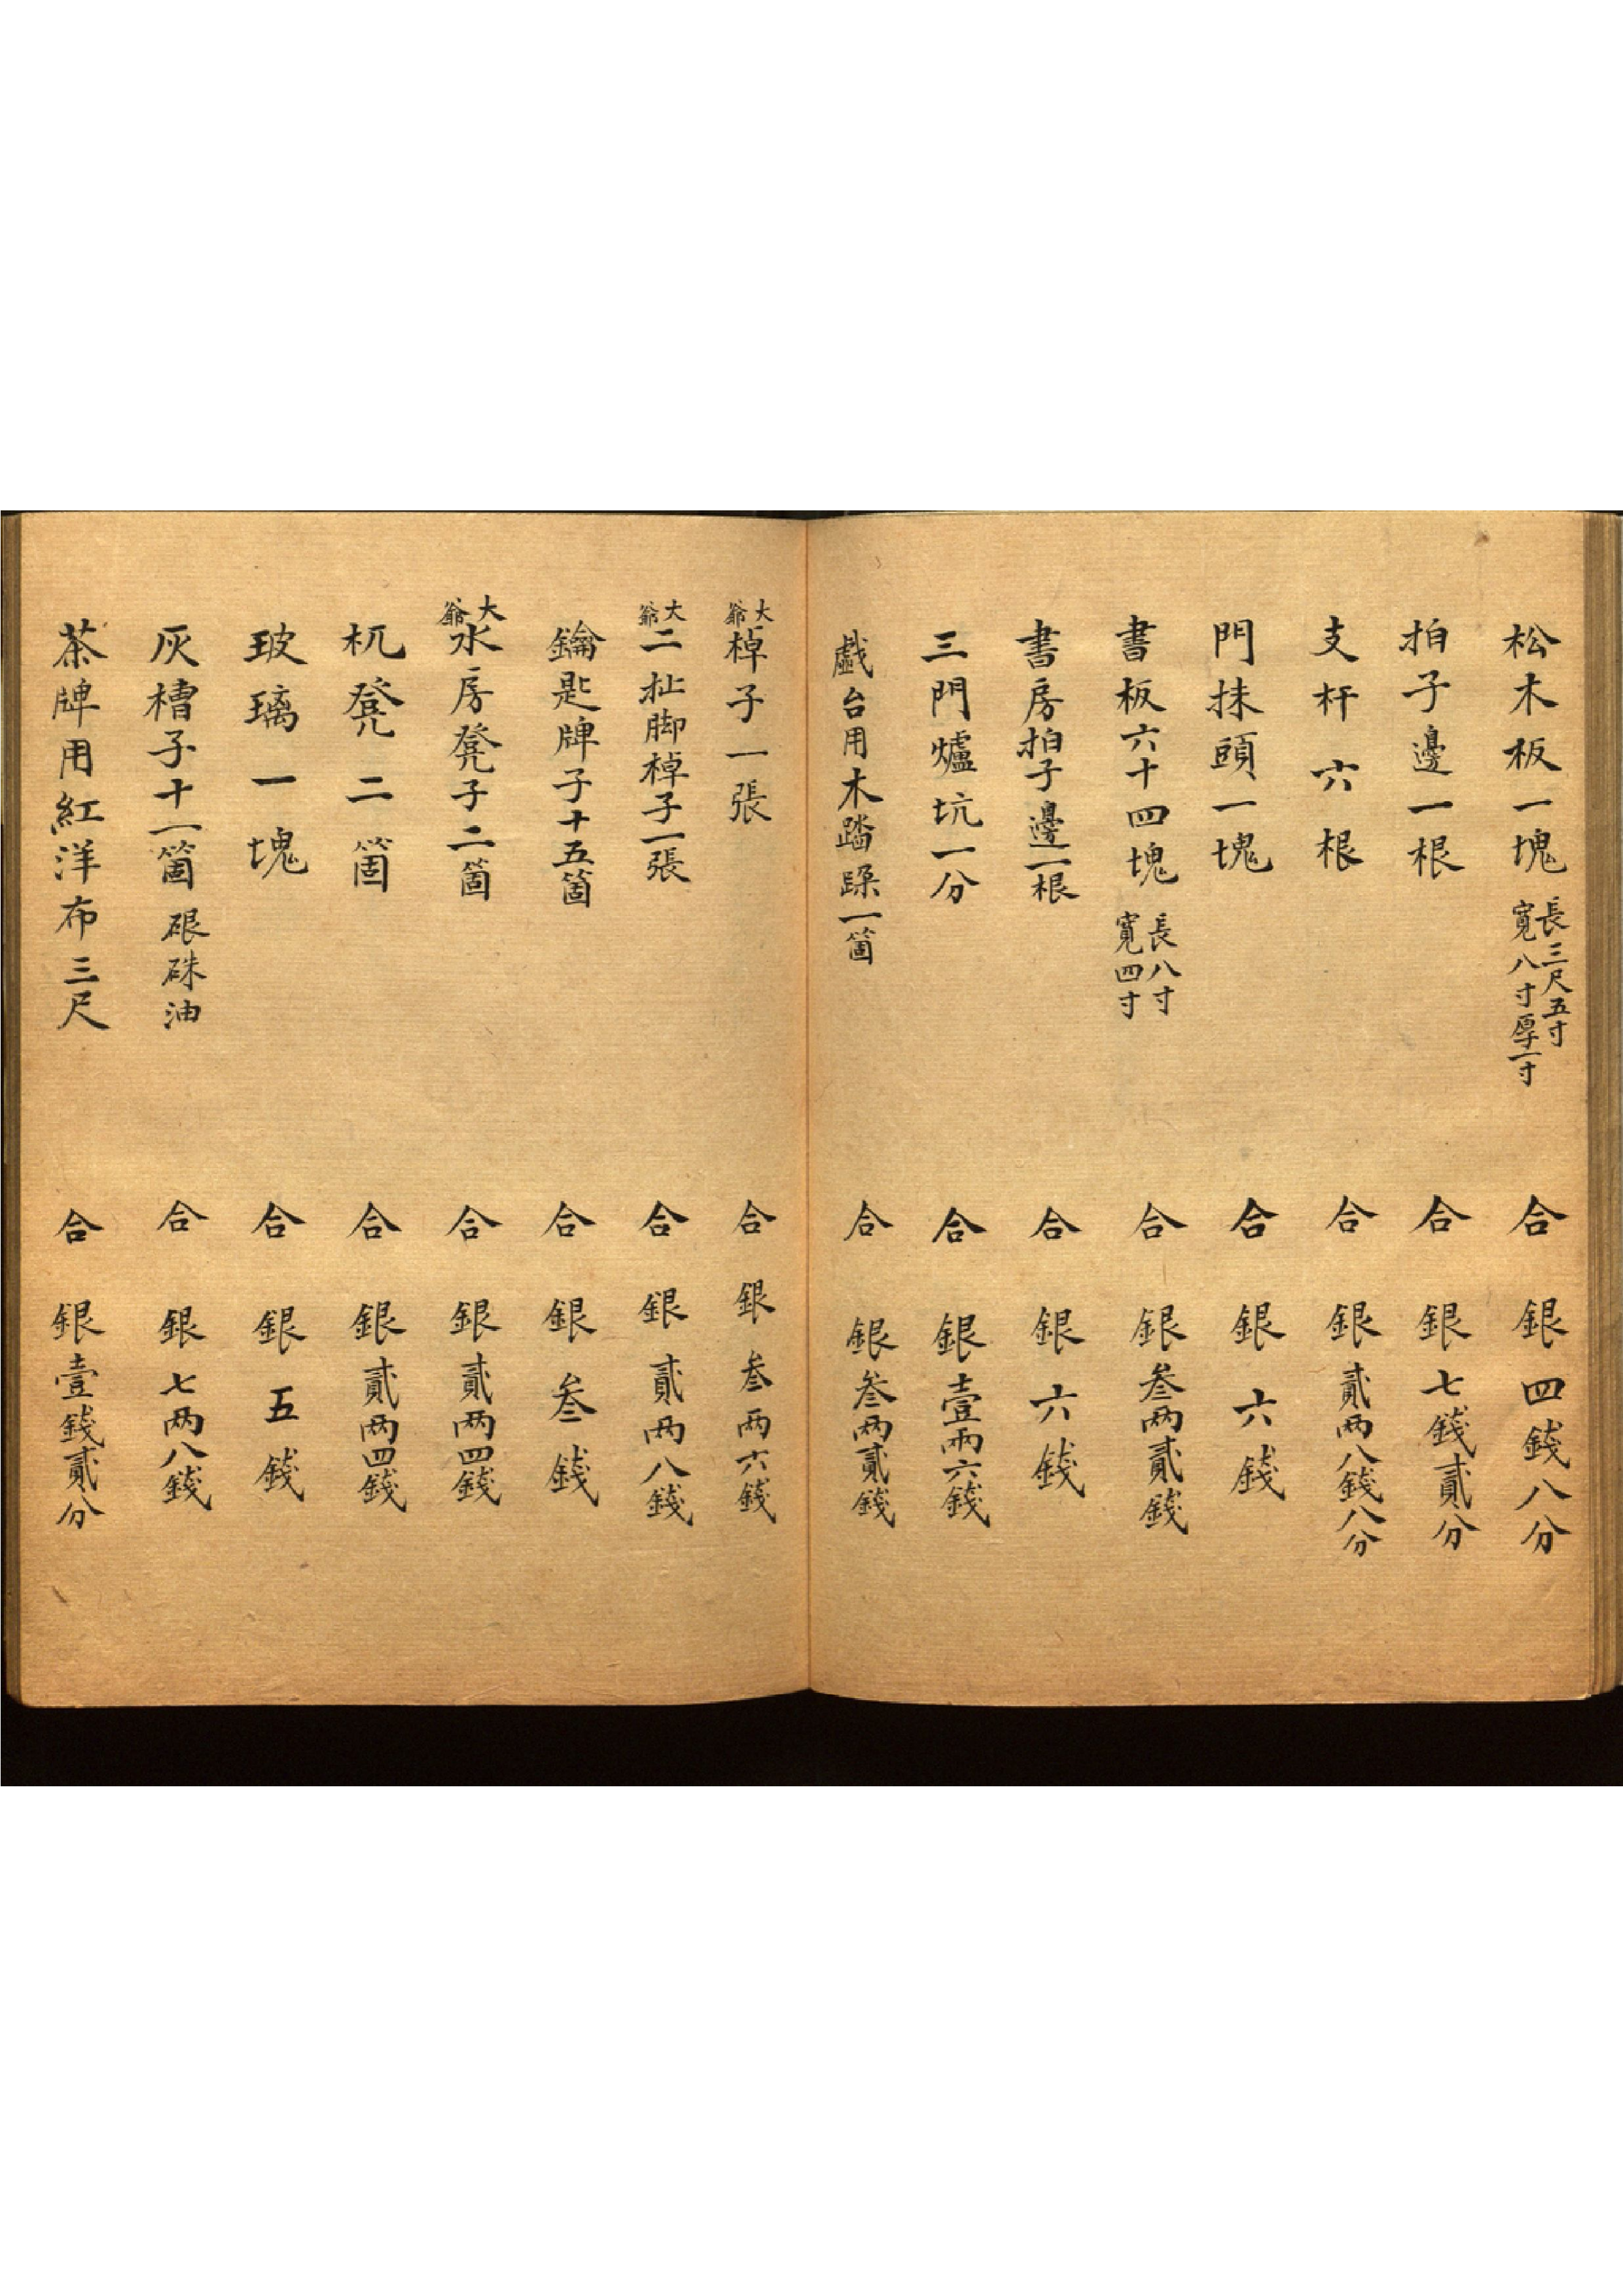 松木板一塊 長三尺五寸 寬八寸厚一寸 合 銀四錢八分
拍子邊一根 合 銀七錢貳分
支杆六根 合 銀貳两八錢八分
門抹頭一塊 合 銀六錢
書板六十四塊 長八寸 寬四寸 合 銀叁两貳錢
書房拍子邊二根 合 銀六錢
三門爐坑一分 合 銀壹两六錢
戲台用木踏跺一箇 合 銀叁两貳錢
大爺 棹子一張 合 銀叁两六錢
大爺 二扯脚棹子一張 合 銀貳两八錢
鑰匙牌子十五箇 合 銀叁錢
大爺 水房凳子二箇 合 銀貳两四錢
杌凳二箇 合 銀貳两四錢
玻璃一塊 合 銀五錢
灰槽子十一箇 硍硃油 合 銀七两八錢
茶牌用紅洋布三尺 合 銀壹錢貳分